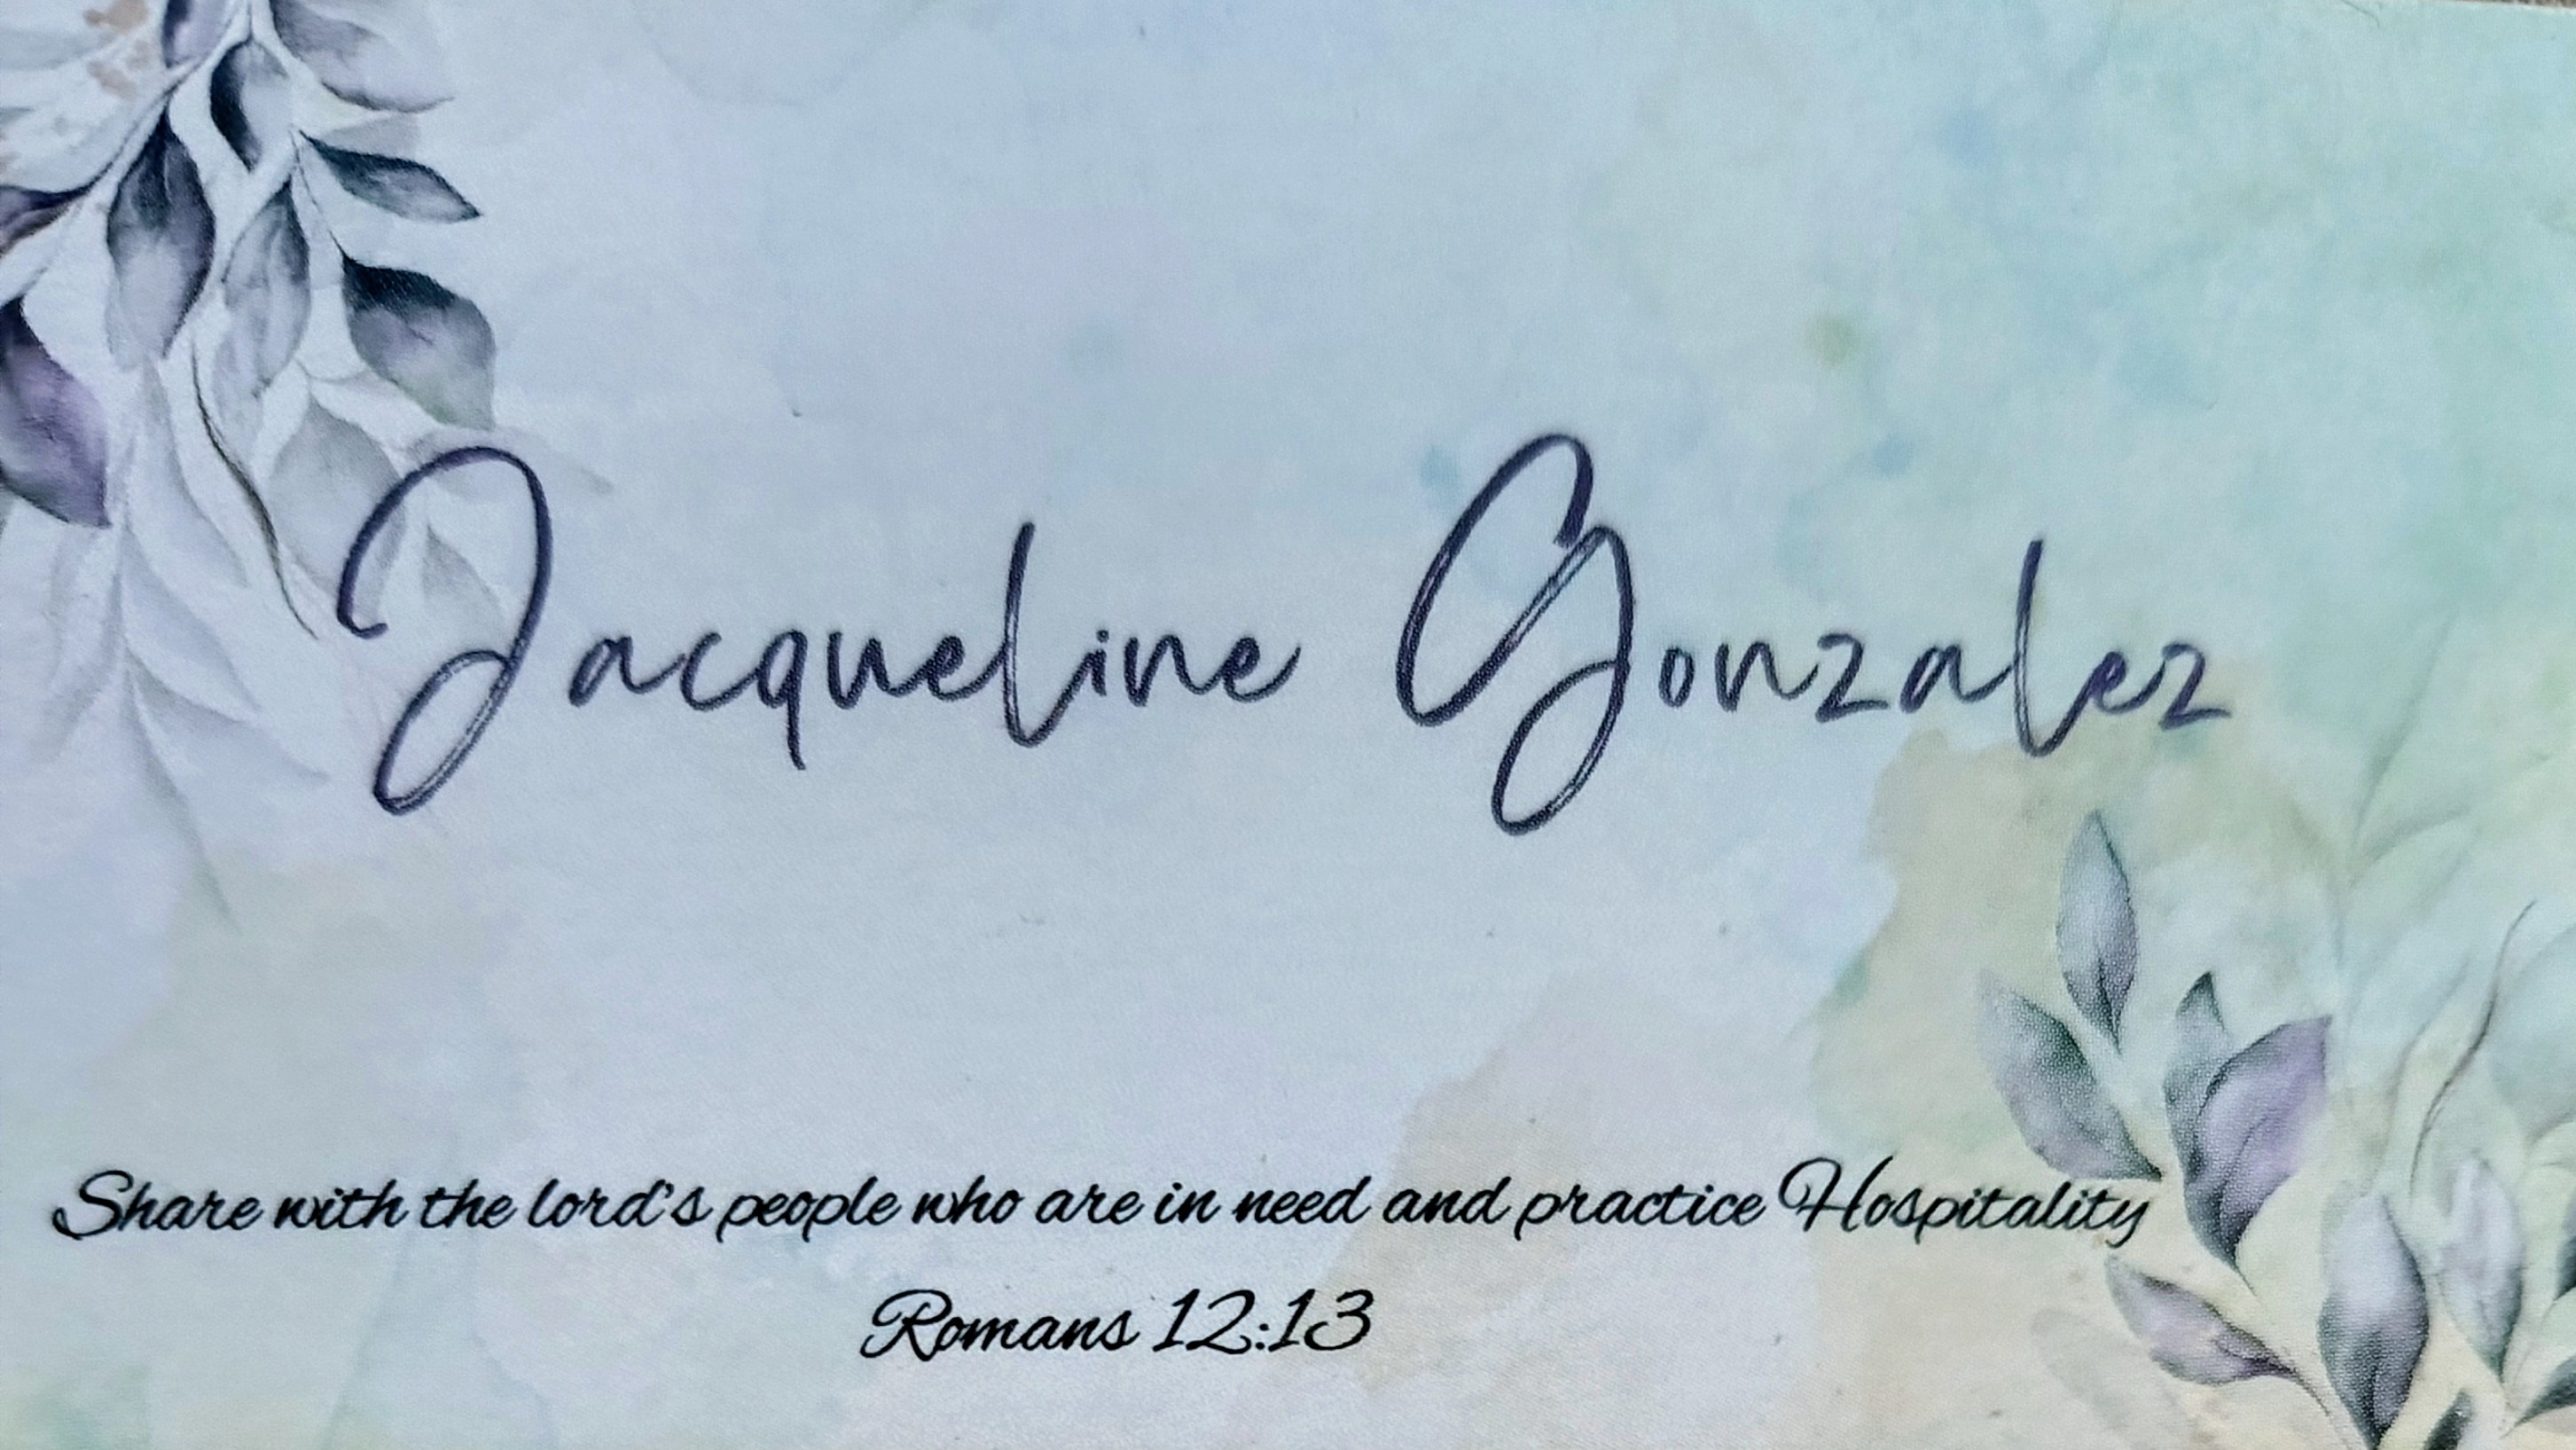 Jacqueline Gonzalez
Share with the lord's people who are in need and practice Hospitality
Romans 12:13